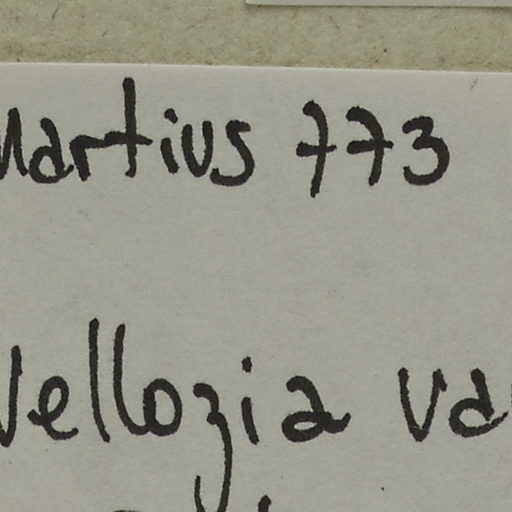 Martius 773
Vellozia va